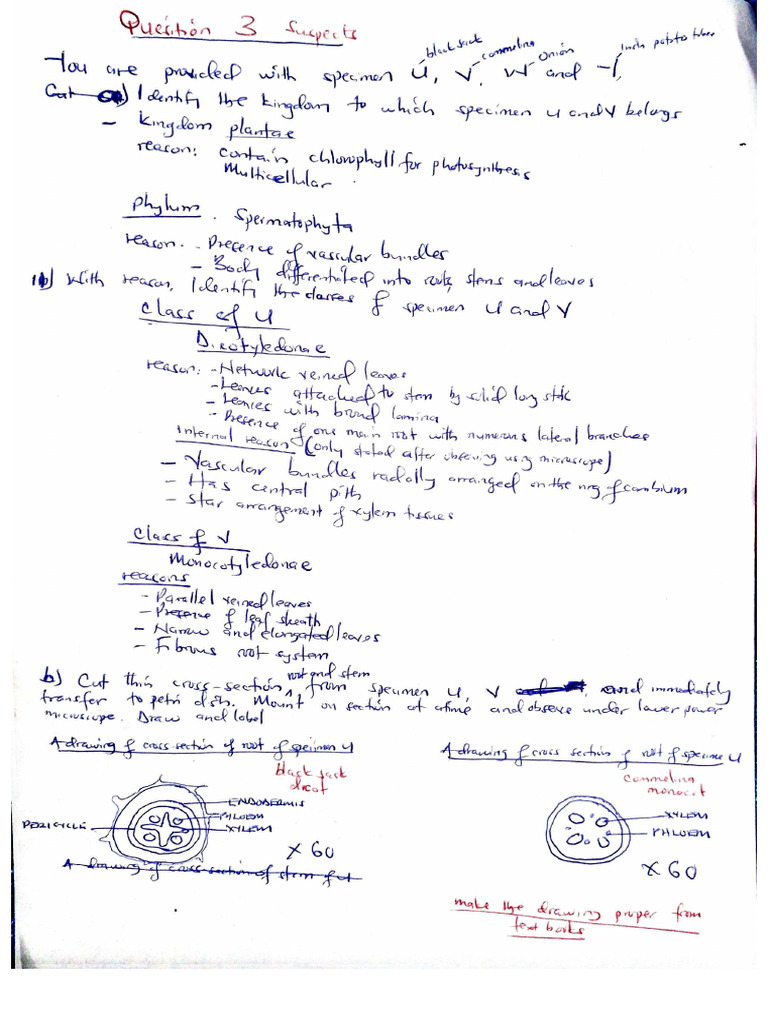 Question 3 Suspects
black jack commelina Onion Irish potato tuber
You are provided with specimen U, V, W and T,
Cut a) Identify the kingdom to which specimen U and V belongs
- Kingdom plantae
reason: contain chlorophyll for photosynthesis
Multicellular
Phylum. Spermatophyta
reason. - Presence of vascular bundles
- Body differentiated into roots, stems and leaves
b) With reason, Identify the classes of specimen U and V
Class of U
Dicotyledonae
reason: - Network veined leaves
- Leaves attached to stem by solid long stalk
- Leaves with broad lamina
- Presence of one main root with numerous lateral branches
Internal reason (only stated after observing using microscope)
- Vascular bundles radially arranged on the ring of cambium
- Has central pith
- Star arrangement of xylem tissues
Class of V
Monocotyledonae
reasons
- Parallel veined leaves
- Presence of leaf sheath
- Narrow and elongated leaves
- Fibrous root system
root and stem
b) Cut thin cross-section, from specimen U, V, and immediately
transfer to petri dish. Mount on section at atime and observe under lower power
microscope. Draw and label
A drawing of cross-section of root of specimen U
A drawing of cross section of root of specime U
black jack
dicot
commelina
monocot
ENDODERMIS
PHLOEM
XYLEM
PERICYCLE
X 60
XYLEM
PHLOEM
X 60
A drawing of cross-section of stem of
make the drawing proper from
text books